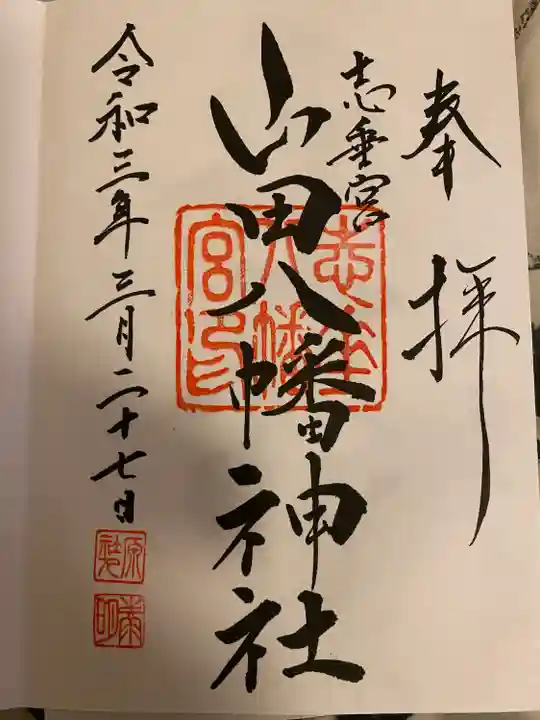 奉拝
志垂宮
山田八幡神社
志垂
八幡
宮印
令和三年三月二十七日